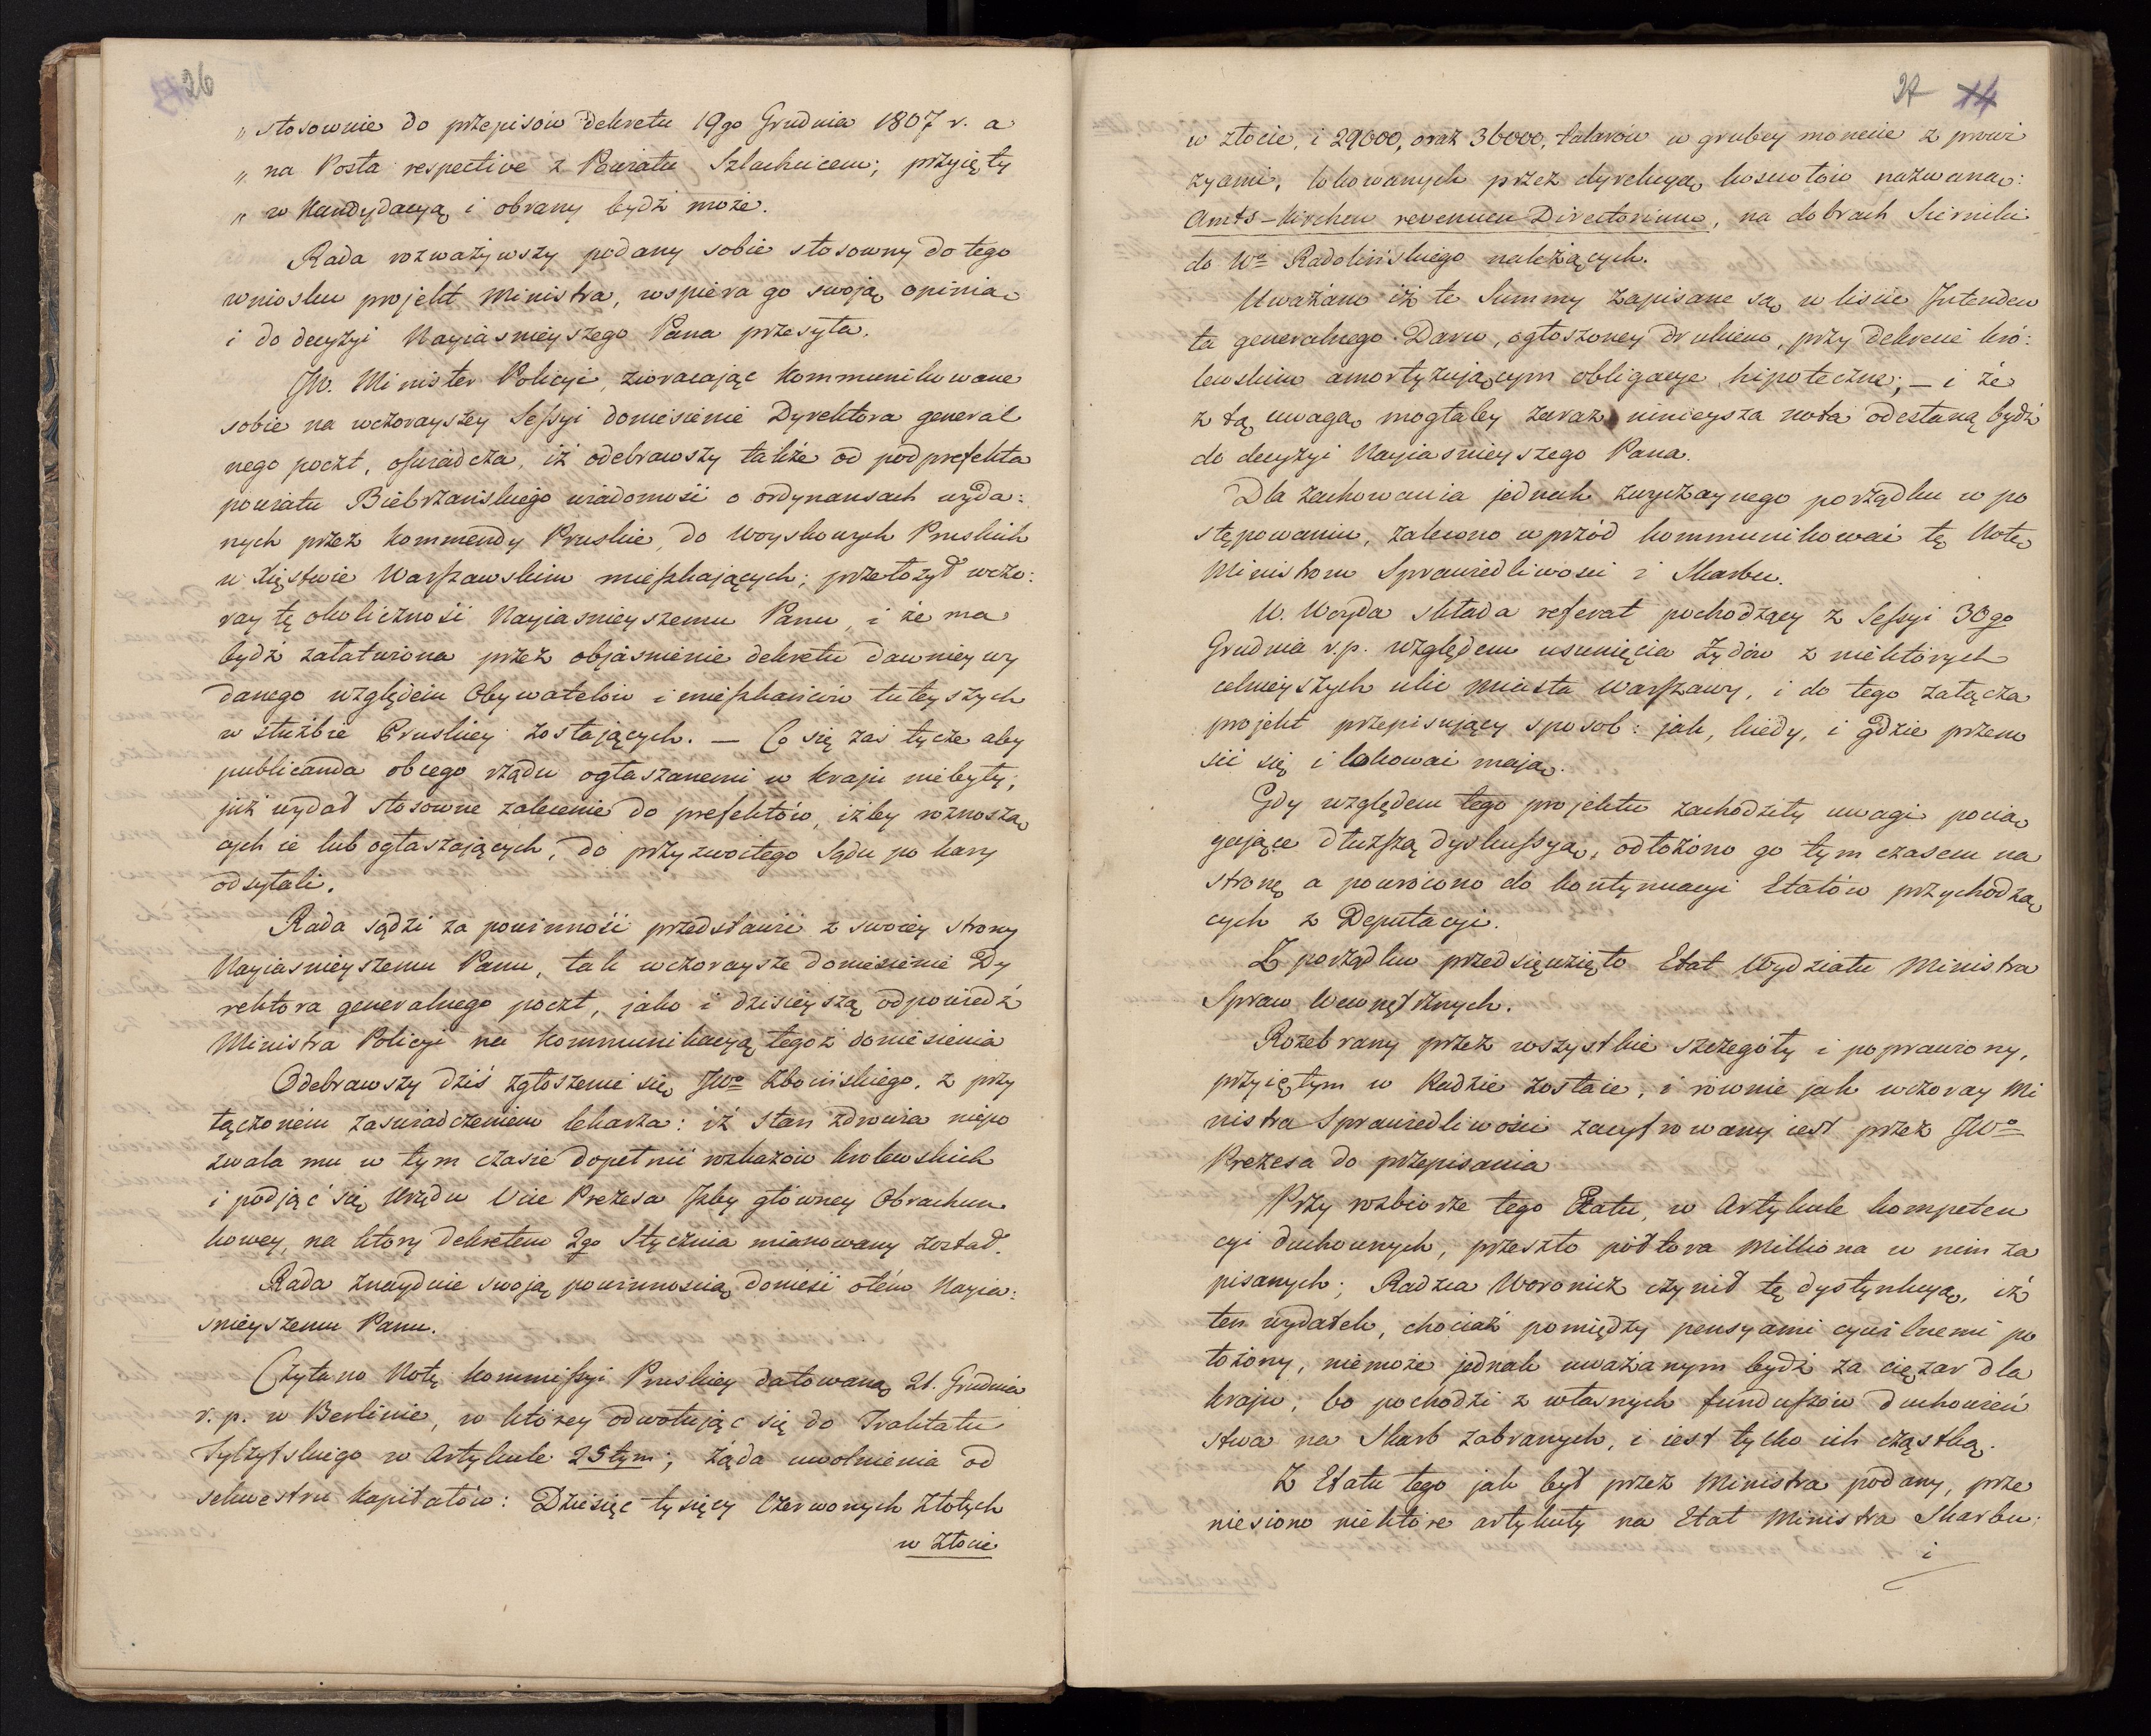 26
„ stosownie do przepisów Dekretu 19go Grudnia 1807 r. a
„ na Posła respective z Powiatu Szlachcicem; przyięty
„ w Kandydacyą i obrany bydź może.
Rada rozważywszy podany sobie stosowny do tego
wniosku projekt Ministra, wspiera go swoją opinia
i do decyzyi Nayiasnieyszego Pana przesyła.
JW. Minister Policyi, zwracając kommunikowane
sobie na wczorayszey Sessyi doniesienie Dyrektora general
nego poczt, oświadcza, iż odebrawszy także od podprefekta
powiatu Biebrzańskiego wiadomość o ordynansach wyda:
nych przez Kommendy Pruskie, do Woyskowych Pruskich
w Xięstwie Warszawskim mieszkających; przełożył wczo:
ray tę okoliczność Nayiasnieyszemu Panu, i że ma
bydź załatwiona przez objaśnienie dekretu dawniey wy
danego względem Obywatelów i mieszkańców tuteyszych
w służbie Pruskiey zostających. — Co się zaś tycze aby
publicanda obcego rządu ogłaszanemi w kraju niebyły;
już wydał stosowne zalecenie do prefektów, iżby roznoszą
cych ie lub ogłaszających, do przyzwoitego Sądu po kary
odsyłali.
Rada sądzi za powinność przedstawić z swoiey strony
Nayiasnieyszemu Panu, tak wczoraysze doniesienie Dy
rektora generalnego poczt, jako i dzisieyszą odpowiedź
Ministra Policyi na Kommunikacyą tegoż doniesienia
Odebrawszy dziś zgłoszenie się JWo Zboińskiego, z przy
łączonem zaświadczeniem lekarza: iż stan zdrowia niepo
zwala mu w tym czasie dopełnić rozkazów królewskich
i podjąć się Urzędu Vice Prezesa Izby główney Obrachun
kowey, na który dekretem 2go Stycznia mianowany został.
Rada znayduie swoją powinnością donieść otém Nayia:
snieyszemu Panu.
Czytano Notę Kommissyi Pruskiey datowaną 21. Grudnia
r. p. w Berlinie, w którey odwołując się do Traktatu
Tylżytskiego w Artykule 25tym; żąda uwolnienia od
sekwestru Kapitałów: Dziesięć tysięcy Czerwonych Złotych
w Złocie
27 14
w złocie, i 29000, oraz 36000, talarów w grubey monecie z prowi
zyami, lokowanych przez dyrekcyą kościołów nazwaną:
Amts-Kirchen revenuen Directorium, na dobrach Siernik
do Wo Radolińskiego należących.
Uważano iż te Summy zapisane są w liście Intenden
ta generalnego Daru, ogłoszoney drukiem, przy dekrecie kró:
lewskim amortyzującym obligacye hipoteczne; — i że
z tą uwagą mogłaby zaraz ninieysza nota odesłaną bydź
do decyzyi Nayiasnieyszego Pana.
Dla zachowania jednak zwyczaynego porządku w po
stępowaniu, zalecono wprzód kommunikować tę Notę
Ministrom Sprawiedliwości i Skarbu.
W. Woyda składa referat pochodzący z Sessyi 30go
Grudnia r.p. względem usunięcia Żydów z niektórych
celnieyszych ulic miasta Warszawy, i do tego załącza
projekt przepisujący sposób: jak, kiedy, i gdzie przeno
sić się i lokować mają.
Gdy względem tego projektu zachodziły uwagi pocią
gające dłuższą dyskussyą, odłożono go tym czasem na
stronę a powrócono do kontynuacyi Etatów przychodzą
cych z Deputacyi.
Z porządku przedsięwzięto Etat Wydziału Ministra
Spraw Wewnętrznych.
Rozebrany przez wszystkie szczegóły i poprawiony,
przyiętym w Radzie zostaie, i równie jak wczoray Mi
nistra Sprawiedliwości zacyfrowany iest przez JWo
Prezesa do przepisania
Przy rozbiorze tego Etatu, w Artykule kompeten
cyi duchownych, przeszło półtora Milliona w nim za
pisanych; Radzca Woronicz czynił tę dystynkcyą, iż
ten wydatek, chociaż pomiędzy pensyami cywilnemi po
łożony, niemoże jednak uważanym bydź za ciężar dla
kraju; bo pochodzi z własnych funduszów duchowień
stwa na Skarb zabranych, i iest tylko ich cząstką.
Z Etatu tego jak był przez Ministra podany, prze
niesiono niektóre artykuły na Etat Ministra Skarbu:
i